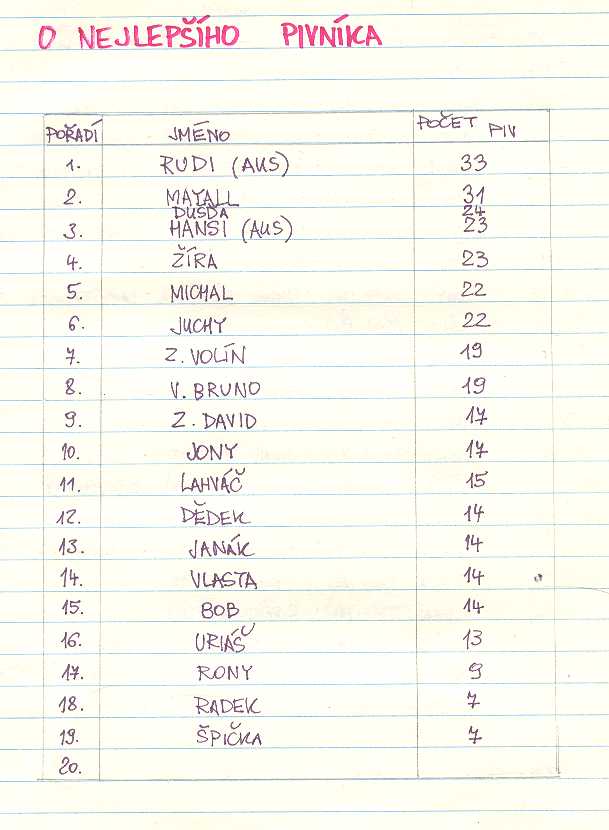 O NEJLEPŠÍHO PIVNÍKA
POŘADÍ JMÉNO POČET PIV
1. RUDI (AUS) 33
2. MAYALL 31
DUŠĎA 24
3. HANSI (AUS) 23
4. ŽÍRA 23
5. MICHAL 22
6. JUCHY 22
7. Z. VOLÍN 19
8. V. BRUNO 19
9. Z. DAVID 17
10. JONY 17
11. LAHVÁČ 15
12. DĚDEK 14
13. JANÁK 14
14. VLASTA 14
15. BOB 14
16. URIÁŠ 13
17. RONY 9
18. RADEK 7
19. ŠPIČKA 7
20.